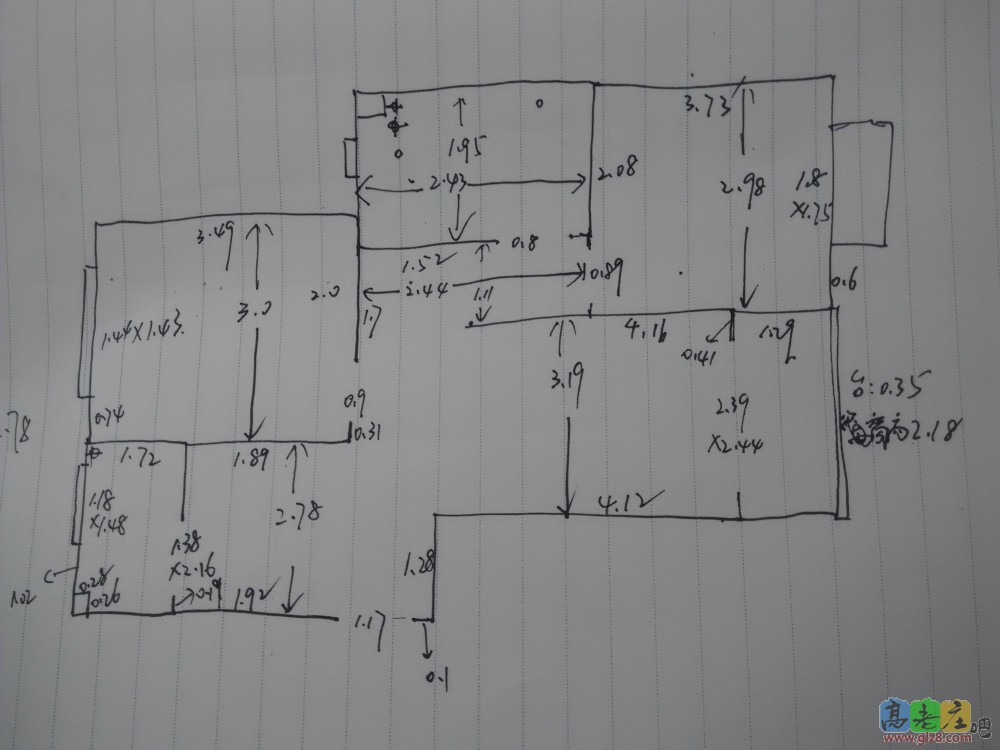 3.73
1.95
2.43
2.08
2.98
1.8
×1.75
3.49
0.8
1.52
2.44
1.11
0.89
0.6
2.0
3.0
1.7
1.44×1.43
4.16
1.29
0.41
3.19
台:0.35
高2.18
0.74
0.9
0.31
2.39
×2.44
.78
1.72
1.89
2.78
1.18
×1.48
4.12
1.38
×2.16
1.28
0.28
0.26
0.19
1.92
1.02
1.17
0.1
高老庄吧
www.glz8.com